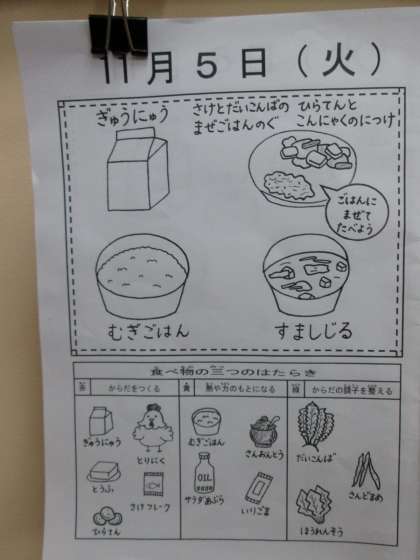 11月5日(火)
ぎゅうにゅう
さけとだいこんばの
まぜごはんのぐ
ひらてんと
こんにゃくのにつけ
ごはんに
まぜて
たべよう
むぎごはん
すましじる
食べ物の三つのはたらき
赤 からだをつくる
黄 熱や力のもとになる
緑 からだの調子を整える
ぎゅうにゅう
とりにく
とうふ
さけフレーク
ひらてん
むぎごはん
さんおんとう
OIL
サラダあぶら
いりごま
だいこんば
さんどまめ
ほうれんそう